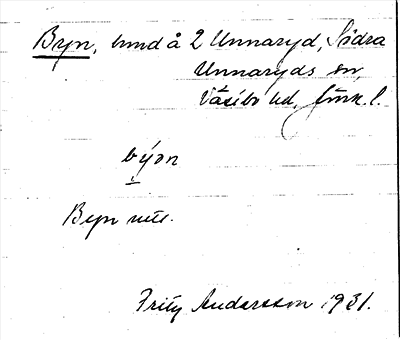 Byn, hmd å 2 Unnaryd, Södra
Unnaryds sn,
Västbo hd, Jönk. l.
býən
Byn
Fritz Andersson 1931.